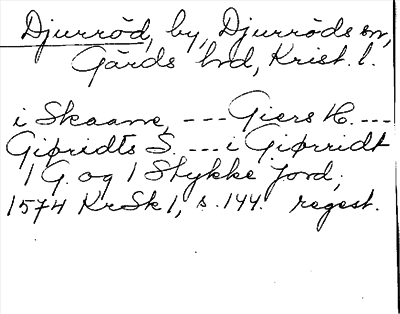 Djurröd, by, Djurröds sn,
Gärds hd, Krist. l.
i Skaane, --- Giers H. ---
Giøridts S. --- i Giørridt
1 G. og 1 Stykke Jord,
1574 KrSk 1, s. 144. regest.